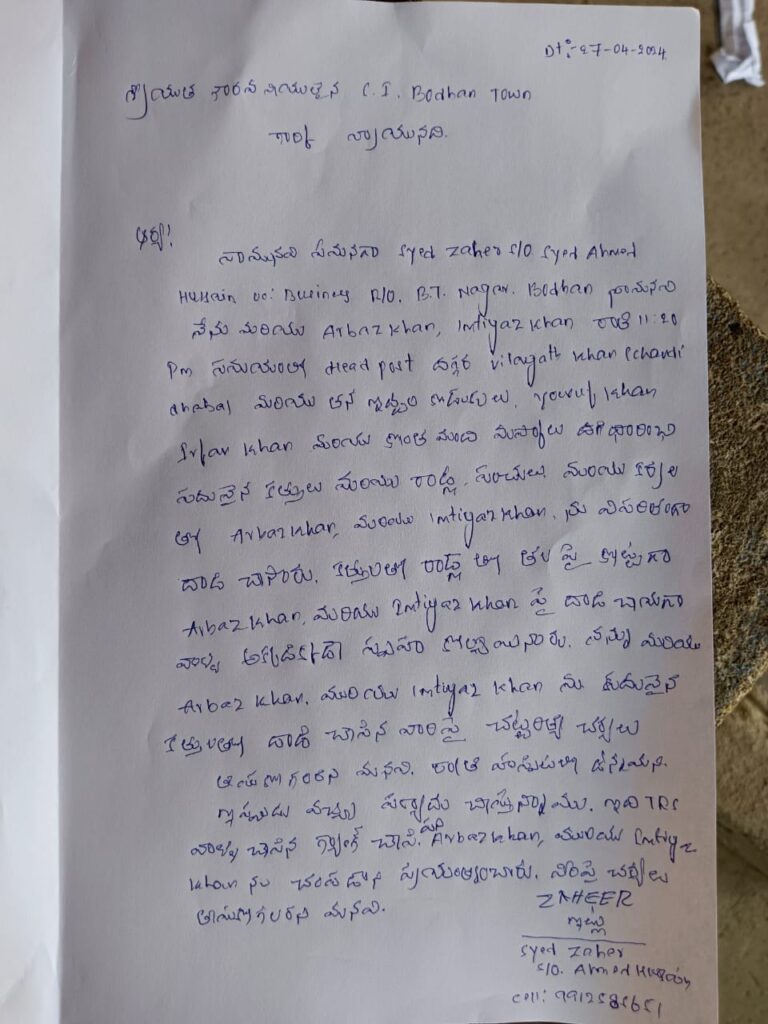 Dt:- 27-04-2024
శ్రీయుత గౌరవనీయులైన C.I. Bodhan Town
గార్కి
ఆర్య!
Syed Zaher S/o Syed Ahmed
Hussain occ: Business R/o. B.T. Nagar. Bodhan
నేను మరియు Arbaz Khan, Imtiyaz Khan రాత్రి 11:20
Pm సమయంలో Head post దగ్గర Vilayath Khan (chandi
dhaba) మరియు తన కొడుకులు, Yousuf Khan
Irfan Khan మరియు కొంత మంది
పదునైన కత్తులు మరియు రాడ్ల, మరియు కర్రల
తో Arbaz Khan, మరియు Imtiyaz Khan, ను విపరీతంగా
దాడి చేసారు. కత్తులతో రాడ్ల తో తల పై
Arbaz Khan, మరియు Imtiyaz Khan పై దాడి చేయగా
వాళ్ళు అక్కడికక్కడే స్పృహ కోల్పోయినారు. నన్ను మరియు
Arbaz Khan, మరియు Imtiyaz Khan ను పదునైన
కత్తులతో దాడి చేసిన వారిపై చట్టరీత్యా చర్యలు
తీసుకోగలరని మనవి. రాత్రి
ఇప్పుడు వచ్చి ఫిర్యాదు చేస్తున్నాము. ఇది TRS
వాళ్ళు చేసిన గ్యాంగ్ Arbaz Khan, మరియు Imtiyaz
Khan ను చంపడానికి ప్రయత్నించారు. వీరిపై చర్యలు
తీసుకోగలరని మనవి.
ZAHEER
ఇట్లు
Syed Zaher
S/o. Ahmed Hussain
cell: